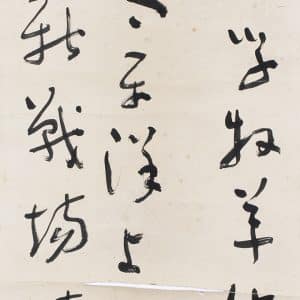 学牧羊
平洋上
新戰場